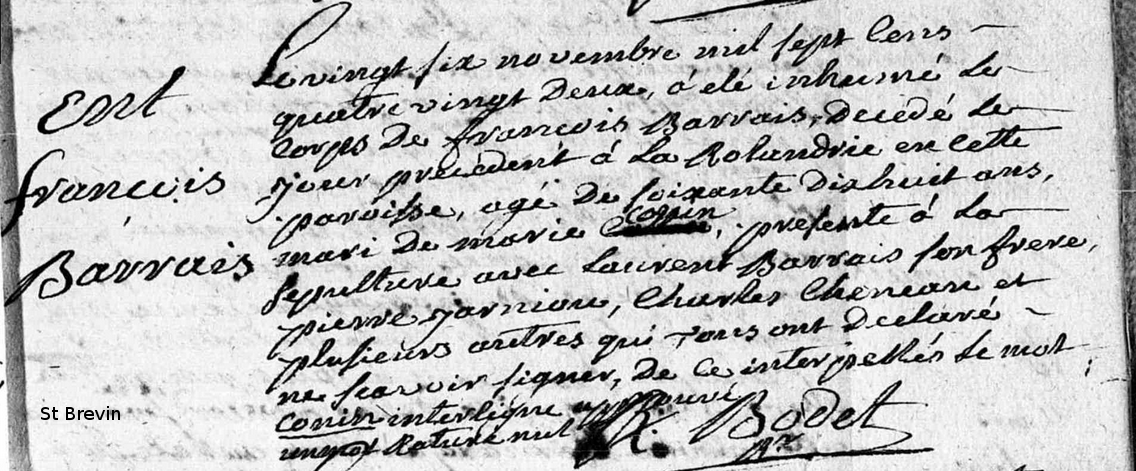 Ent
françois
Barrais
Le vingt six novembre mil sept Cens
quatre vingt deux, a été inhumé Le
Corps de françois Barrais, decedé Le
jour precedent à La Rolandrie en Cette
paroisse, agé de soixante dixhuit ans,
mari de marie conin, presente à La
sepulture avec Laurent Barrais son frere,
pierre jarniou, Charles Cheneau et
plusieurs autres qui tous ont declaré
ne scavoir signer, de Ce interpellés Le mot
conin interligne approuvé
un mot Raturé nul
R. Bodet
St Brevin